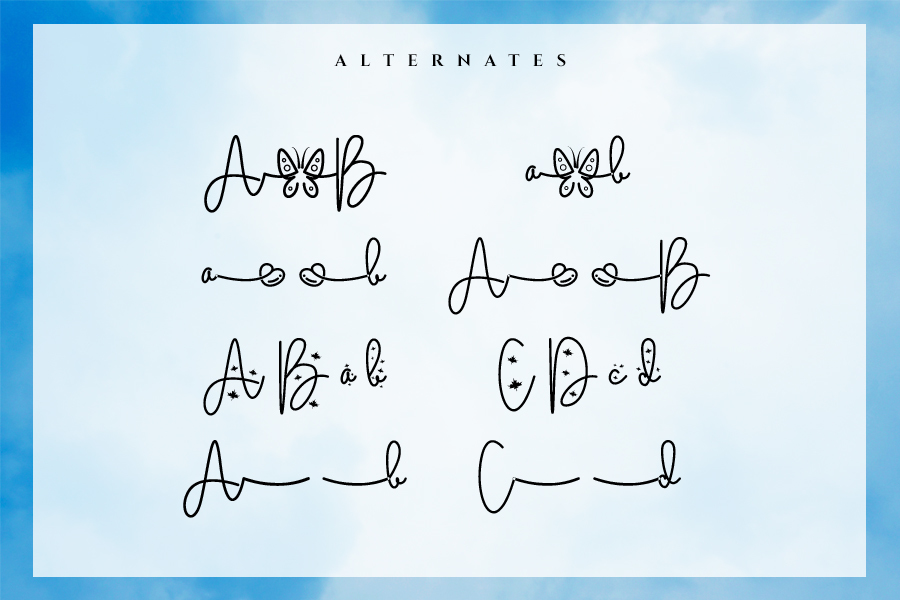 ALTERNATES
A B a b
a b A B
A B a b C D c d
A b C d